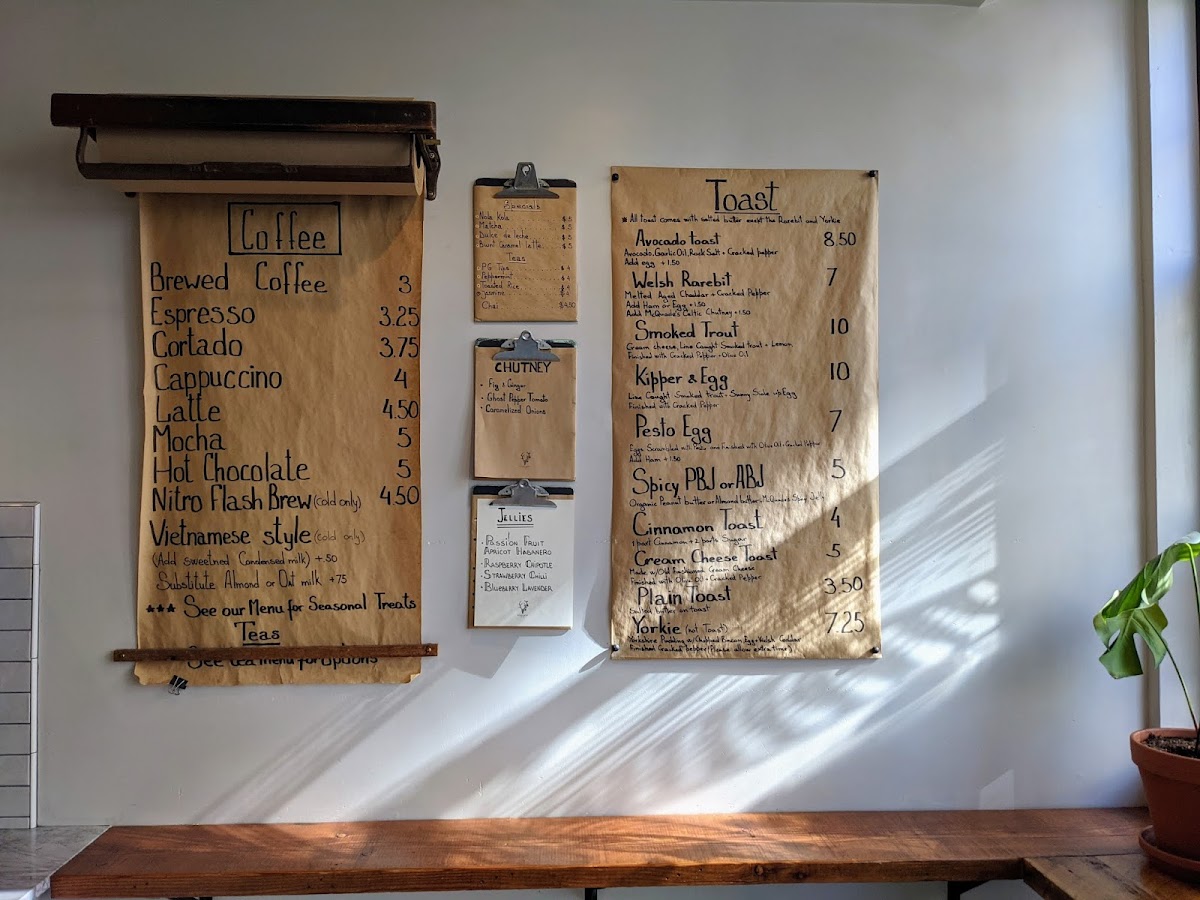 Coffee
Brewed Coffee 3
Espresso 3.25
Cortado 3.75
Cappuccino 4
Latte 4.50
Mocha 5
Hot Chocolate 5
Nitro Flash Brew (cold only) 4.50
Vietnamese style (cold only)
(Add sweetned Condensed milk) +.50
Substitute Almond or Oat milk +75
*** See our Menu for Seasonal Treats
Teas
See tea menu for options
Specials
Nola Kola $5
Matcha $5
Dulce de leche $5
Burnt Caramel latte $5
Teas
PG Tips $4
Peppermint $4
Toasted Rice $4
Jasmine $4
Chai $4.50
CHUTNEY
- Fig & Ginger
- Ghost Pepper Tomato
- Caramelized Onions
JELLIES
· PASSION FRUIT
APRICOT HABANERO
· RASPBERRY CHIPOTLE
· STRAWBERRY CHILLI
· BLUEBERRY LAVENDER
Toast
* All toast comes with salted butter exept the Rarebit and Yorkie
Avocado toast 8.50
Avocado, Garlic Oil, Rock Salt + Cracked pepper
Add egg +1.50
Welsh Rarebit 7
Melted Aged Cheddar + Cracked Pepper
Add Ham or Egg +1.50
Add McQuade's Celtic Chutney +1.50
Smoked Trout 10
Cream cheese, Line Caught Smoked trout + Lemon
Finished with Cracked Pepper + Olive Oil
Kipper & Egg 10
Line Caught Smoked trout + Egg
Finished with Cracked Pepper
Pesto Egg 7
Eggs Scrambled with Pesto and Finished with Olive Oil + Cracked Pepper
Add Ham +1.50
Spicy PBJ or ABJ 5
Organic Peanut butter or Almond butter + McQuades Spicy Jelly
Cinnamon Toast 4
1 part Cinnamon + 2 parts Sugar
Cream Cheese Toast 5
Made w/Old Fashioned Cream Cheese
Finished with Olive Oil + Cracked Pepper
Plain Toast 3.50
Salted butter on toast
Yorkie (not Toast) 7.25
Yorkshire Pudding w/Chopped Bacon, Egg + Welsh Cheddar
Finished Cracked pepper (Please allow extra time)